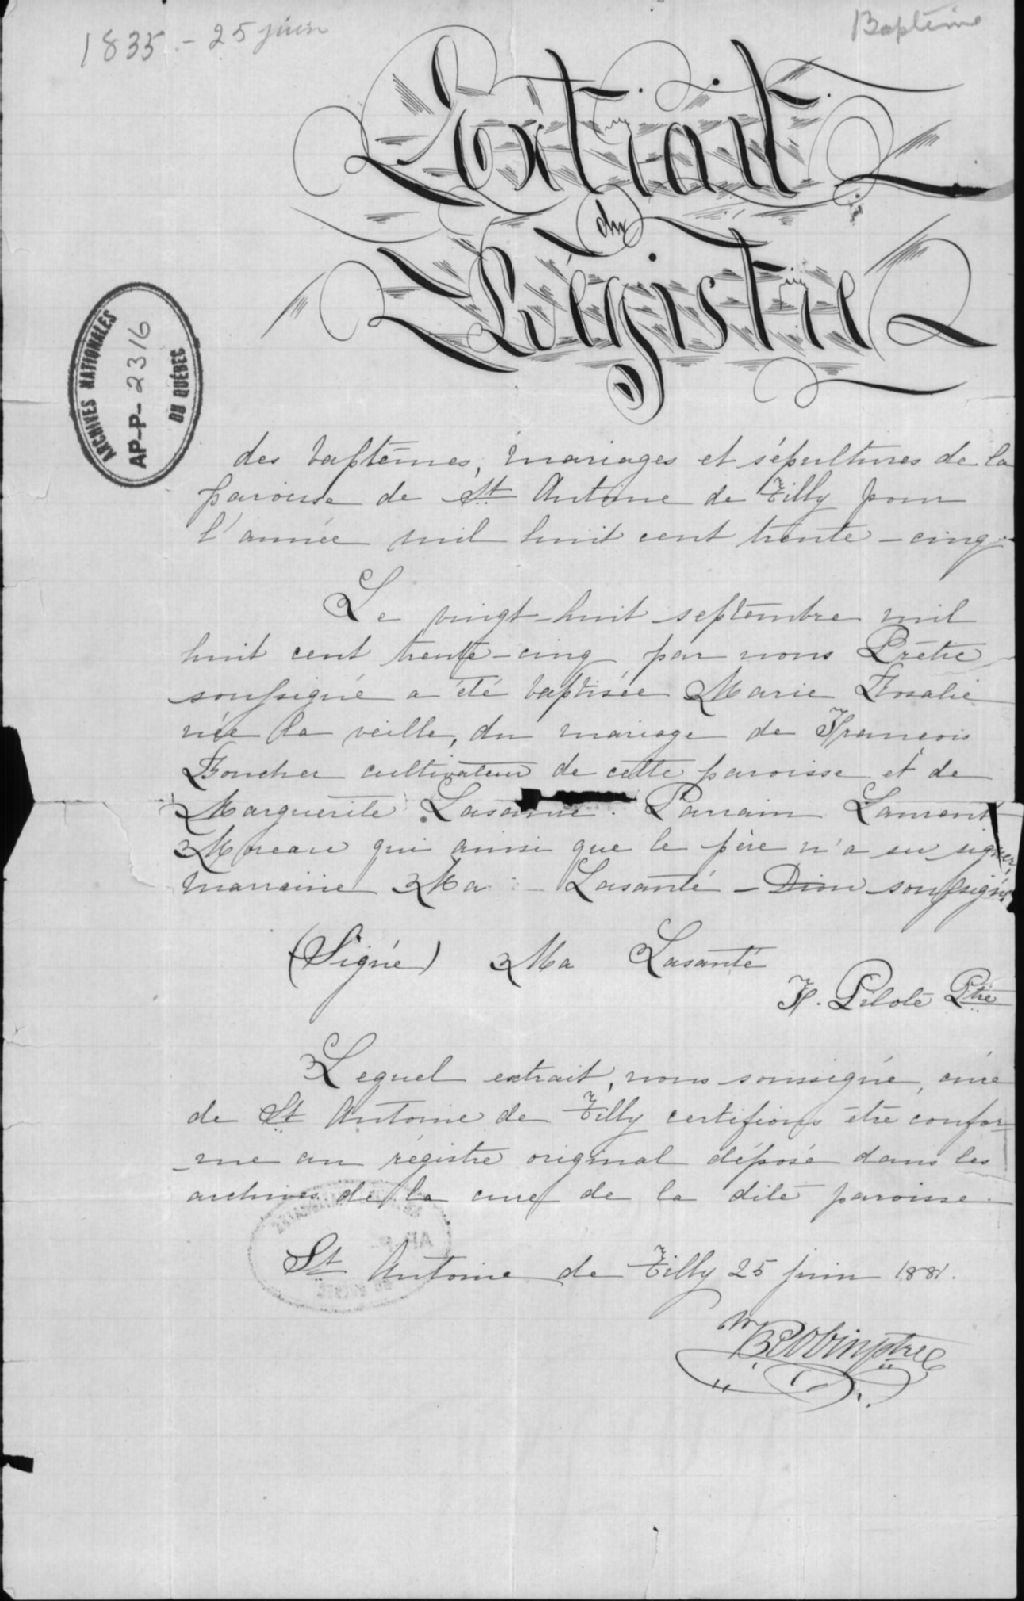 1835 - 25 juin
Baptême
Extrait
du
Régistre
ARCHIVES NATIONALES
AP-P-2316
DU QUÉBEC
des baptêmes, mariages et sépultures de la
paroisse de St Antoine de Tilly pour
l'année mil huit cent trente-cinq
Le vingt-huit septembre mil
huit cent trente-cinq par nous Prêtre
soussigné a été baptisée Marie Rosalie
née la veille, du mariage de François
Boucher cultivateur de cette paroisse et de
Marguerite Parrain Laurent
Moreau qui ainsi que le père n'a su signer,
marraine Ma Lasanté - soussigné
(Signé) Ma Lasanté
F. Pilote Ptre
Lequel extrait, nous soussigné, curé
de St Antoine de Tilly certifions être confor-
me au régistre original déposé dans les
archives de la cure de la dite paroisse.
St Antoine de Tilly 25 juin 1881.